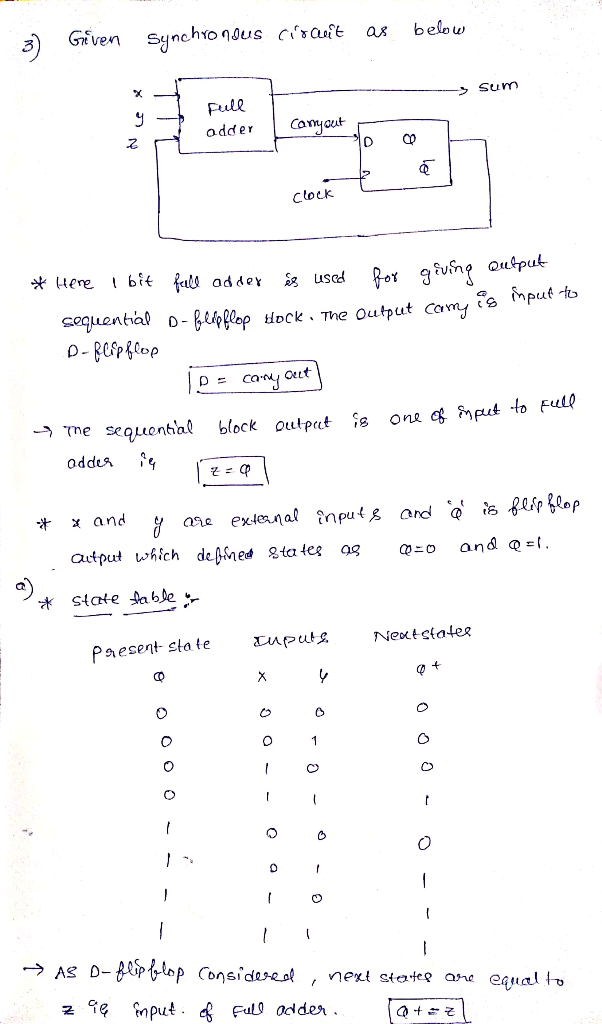 3) Given synchronous circuit as below
x
y
z
Full
adder
sum
carryout
D Q
Q̅
clock
* Here 1 bit full adder is used for giving output
sequential D-flipflop block. The output carry is input to
D-flipflop
D = carry out
→ The sequential block output is one of input to full
adder ie z = Q
* x and y are external inputs and 'Q' is flipflop
output which defined states as Q=0 and Q=1.
a) * state table :-
Present state Inputs Next states
Q x y Q+
0 0 0 0
0 0 1 0
0 1 0 0
0 1 1 1
1 0 0 0
1 0 1 1
1 1 0 1
1 1 1 1
→ As D-flipflop considered, next states are equal to
z ie input. of full adder. Q+=z